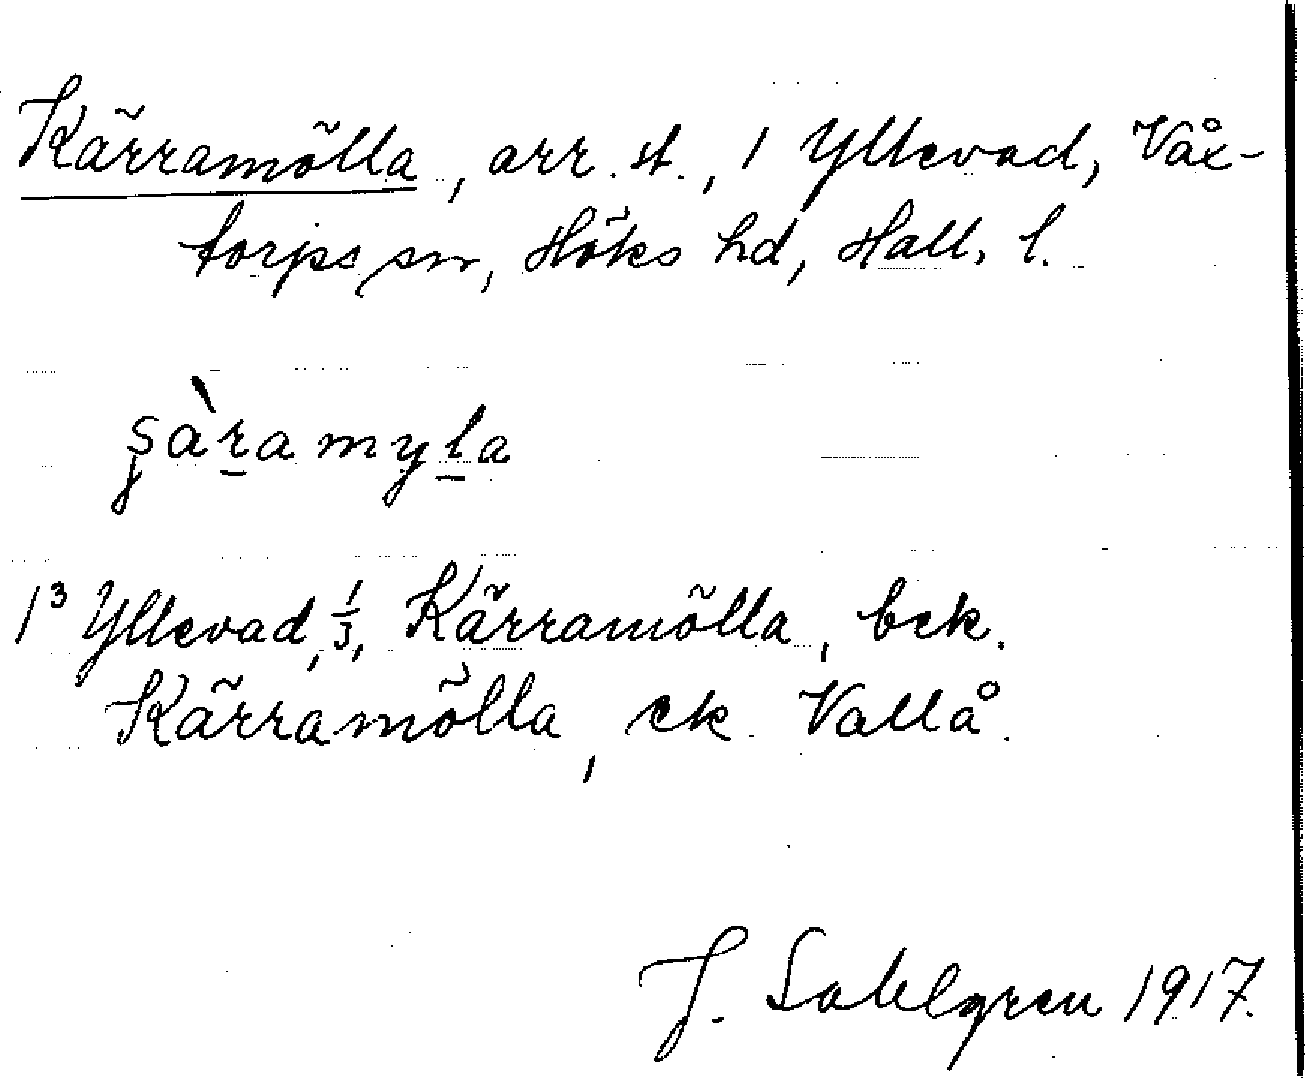 Kärramölla, arr. st., 1 Yllevad, Våx-
torps sn, Höks hd, Hall. l.
şàr̲amyl̲a
1³ Yllevad, 1/3, Kärramölla, bek.
Kärramölla, ek. Vallå.
J. Sahlgren 1917.